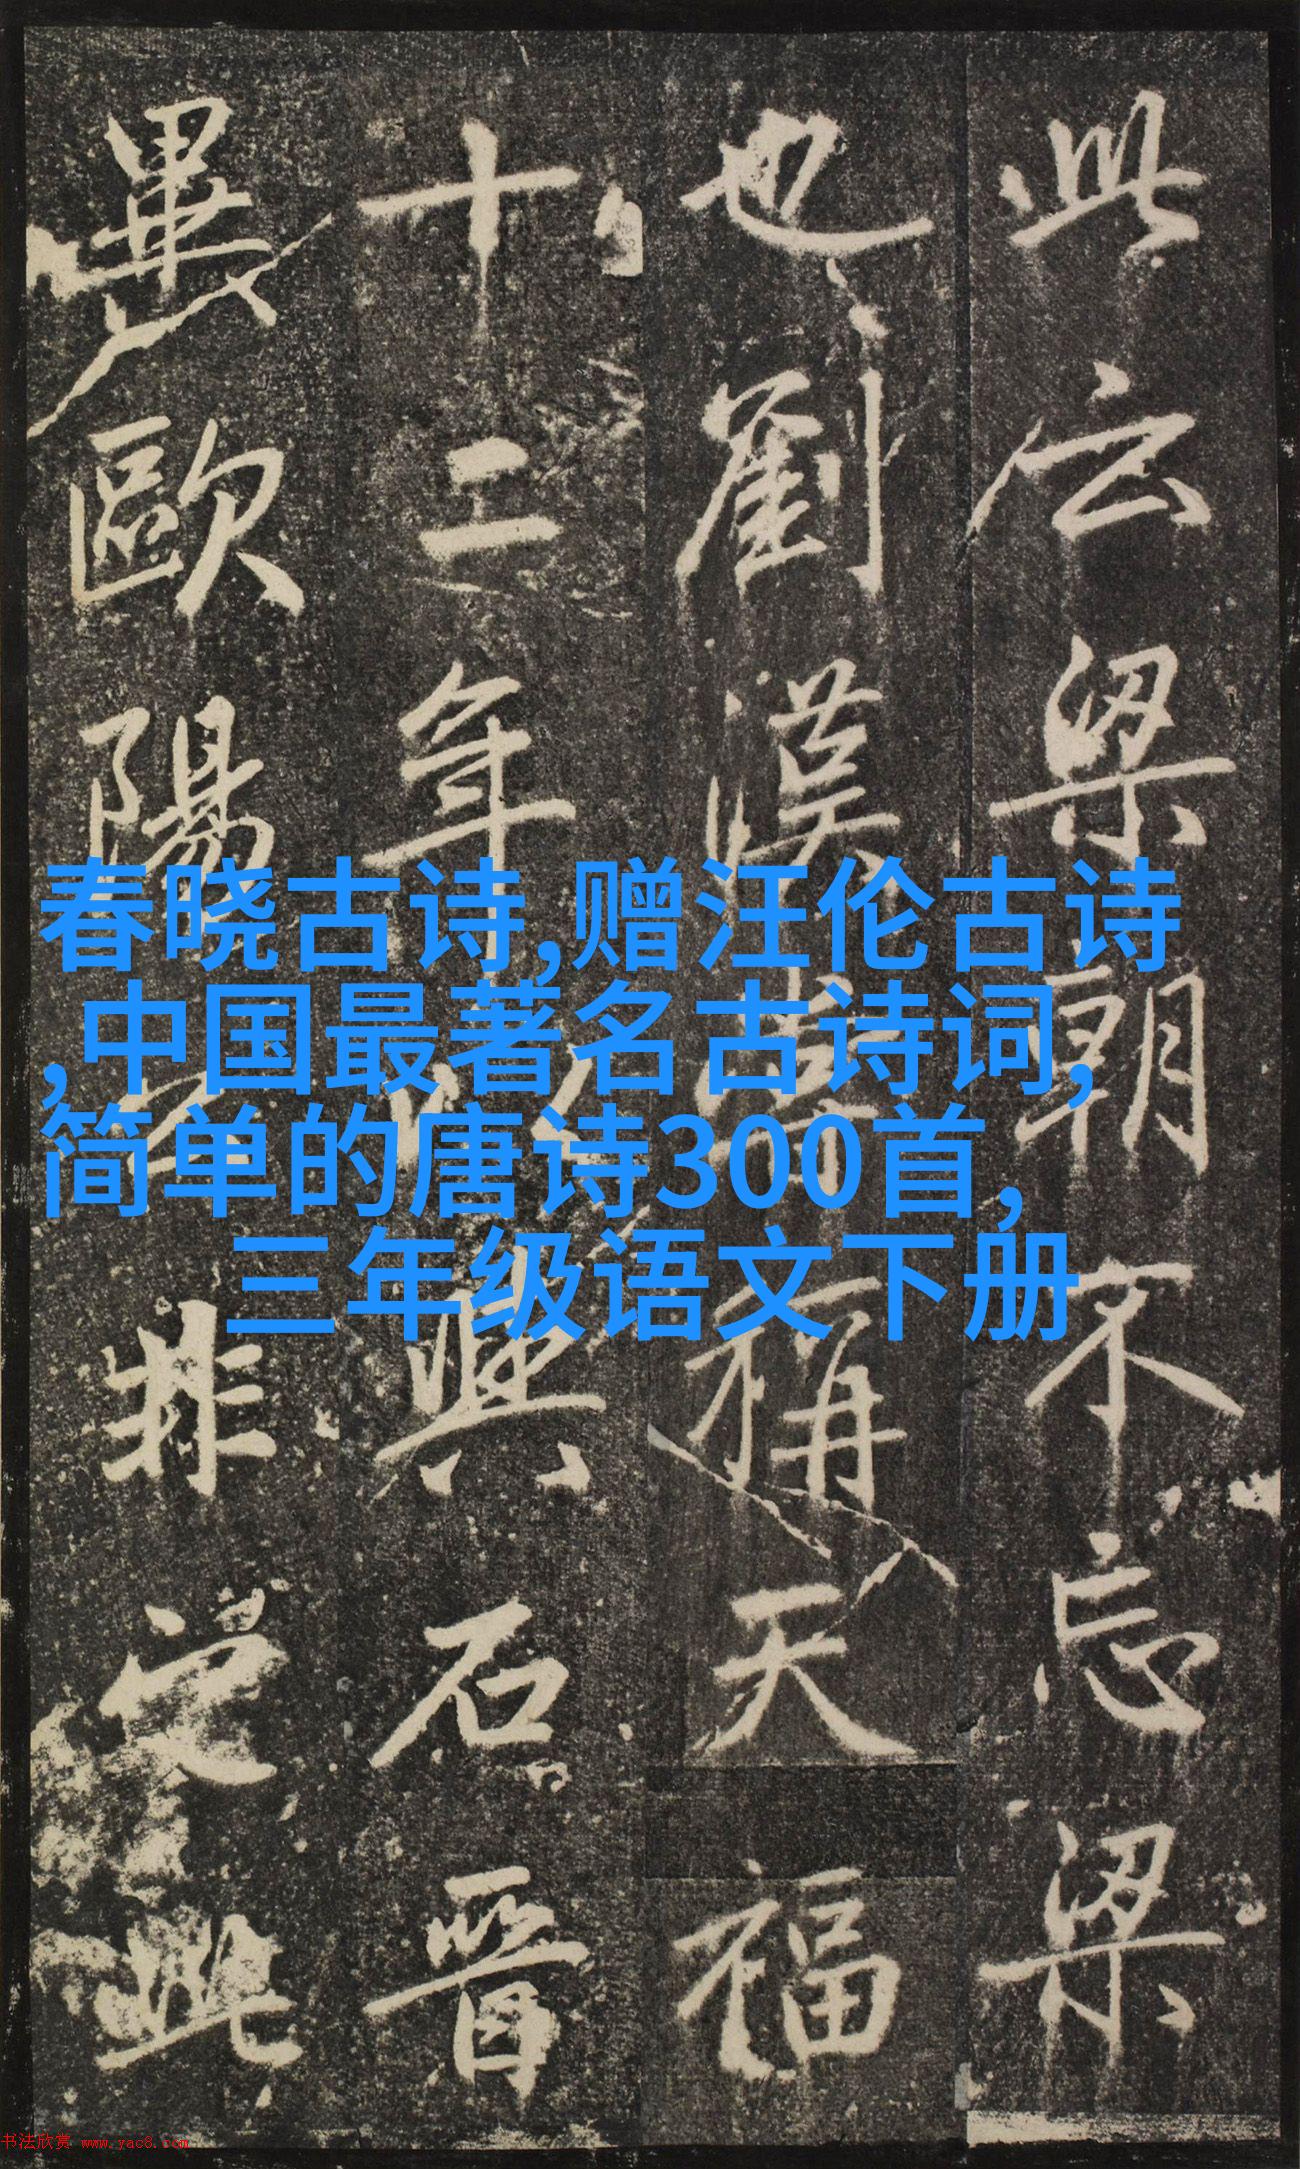 春晓古诗,赠汪伦古诗
,中国最著名古诗词,
简单的唐诗300首,
三年级语文下册
此云梁朝不忘梁
也劉漢稱天福
十二年與石晉
畢歐陽非此
书法欣赏 www.yac8.com